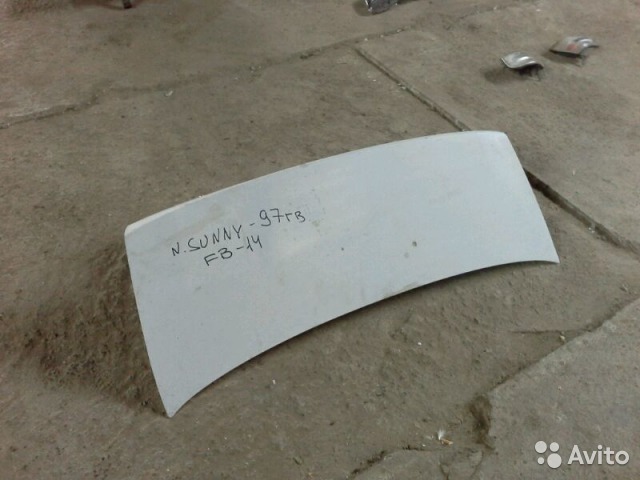 N. SUNNY - 97гв
FB-14
Avito